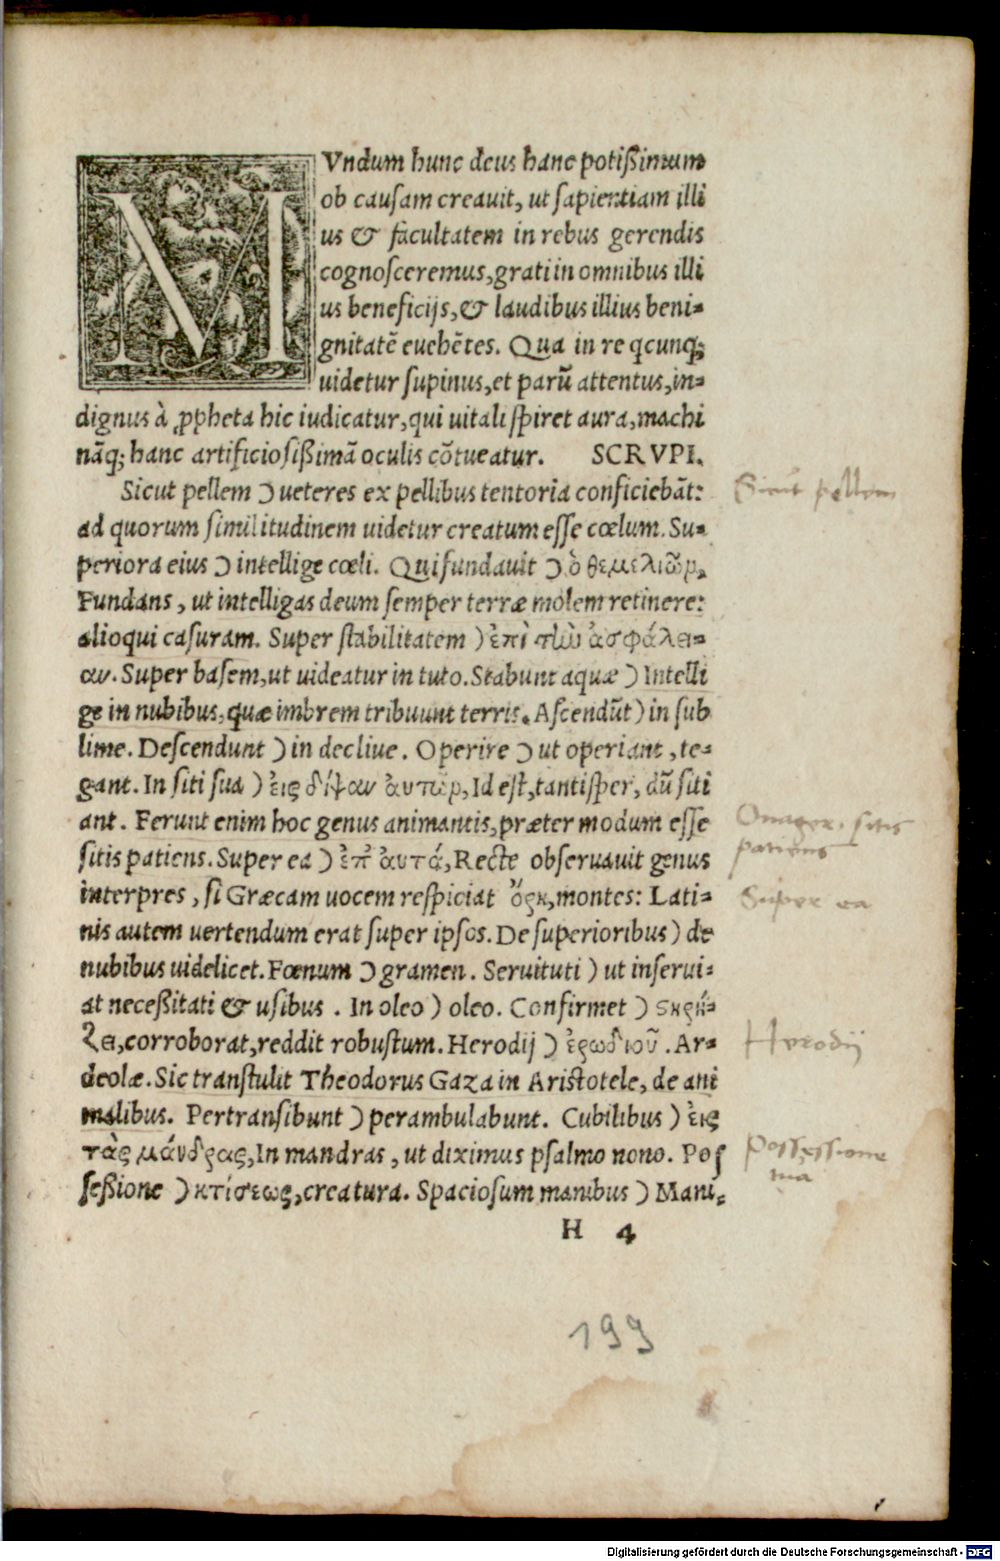 MVndum hunc deus hanc potißimum
ob causam creauit, ut sapientiam illi
us & facultatem in rebus gerendis
cognosceremus, grati in omnibus illi
us beneficijs, & laudibus illius beni-
gnitatē euehētes. Qua in re qcunq;
uidetur supinus, et parū attentus, in-
dignus à ꝓpheta hic iudicatur, qui uitali spiret aura, machi
nāq; hanc artificiosißimā oculis cōtueatur. SCRVPI.
Sicut pellem ) ueteres ex pellibus tentoria conficiebāt:
ad quorum similitudinem uidetur creatum esse cœlum. Su-
periora eius ) intellige cœli. Qui fundauit ) ὁ θεμελιῶν.
Fundans, ut intelligas deum semper terræ molem retinere:
alioqui casuram. Super stabilitatem ) ἐπὶ τὼ ἀσφάλει-
αν. Super basem, ut uideatur in tuto. Stabunt aquæ ) Intelli
ge in nubibus, quæ imbrem tribuunt terris. Ascendūt ) in sub
lime. Descendunt ) in decliue. Operire ) ut operiant, te-
gant. In siti sua ) εἰς δίψαν ἀυτῶν, Id est, tantisper, dū siti
ant. Ferunt enim hoc genus animantis, præter modum esse
sitis patiens. Super ea ) ἐπ᾽ ἀυτά, Recte obseruauit genus
interpres, si Græcam uocem respiciat ὄρη, montes: Lati-
nis autem uertendum erat super ipsos. De superioribus ) de
nubibus uidelicet. Fœnum ) gramen. Seruituti ) ut inserui-
at neceßitati & usibus. In oleo ) oleo. Confirmet ) στηρί-
ζει, corroborat, reddit robustum. Herodij ) ἐρωδιοῦ. Ar-
deolæ. Sic transtulit Theodorus Gaza in Aristotele, de ani
malibus. Pertransibunt ) perambulabunt. Cubilibus ) εἰς
τὰς μάνδρας, In mandras, ut diximus psalmo nono. Pos
seßione ) κτίσεως, creatura. Spaciosum manibus ) Mani-
H 4
Sicut pellem
Onager. sitis
patiens
Super ea
Herodij
Possessione
tua
199
Digitalisierung gefördert durch die Deutsche Forschungsgemeinschaft - DFG